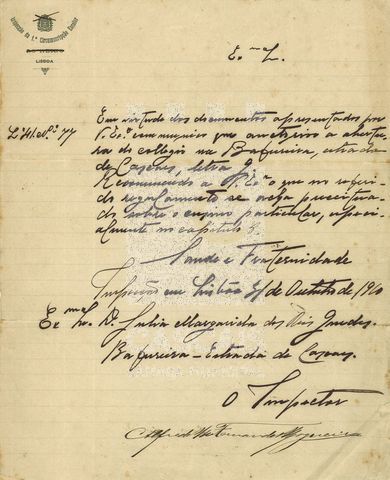 Inspecção da 1.ª Circumscripção Escolar
LISBOA
Ex.ma S.
L.º 41 N.º 77
Em virtude dos documentos apresentados por
V. Ex.ª communico que auctoriso a abertu-
ra do collegio na Bafureira, estrada
de Cascaes, letra J.
Recommendo a V. Ex.ª o que no referi-
do regulamento se acha preceitua-
do sobre o ensino particular, especi-
almente no capitulo 8.
Saude e Fraternidade
Inspecção em Lisboa 31 de Outubro de 1910
Ex.ma Sr.ª D. Julia Margarida dos Reis Guedes.
Bafureira – Estrada de Cascaes.
O Inspector